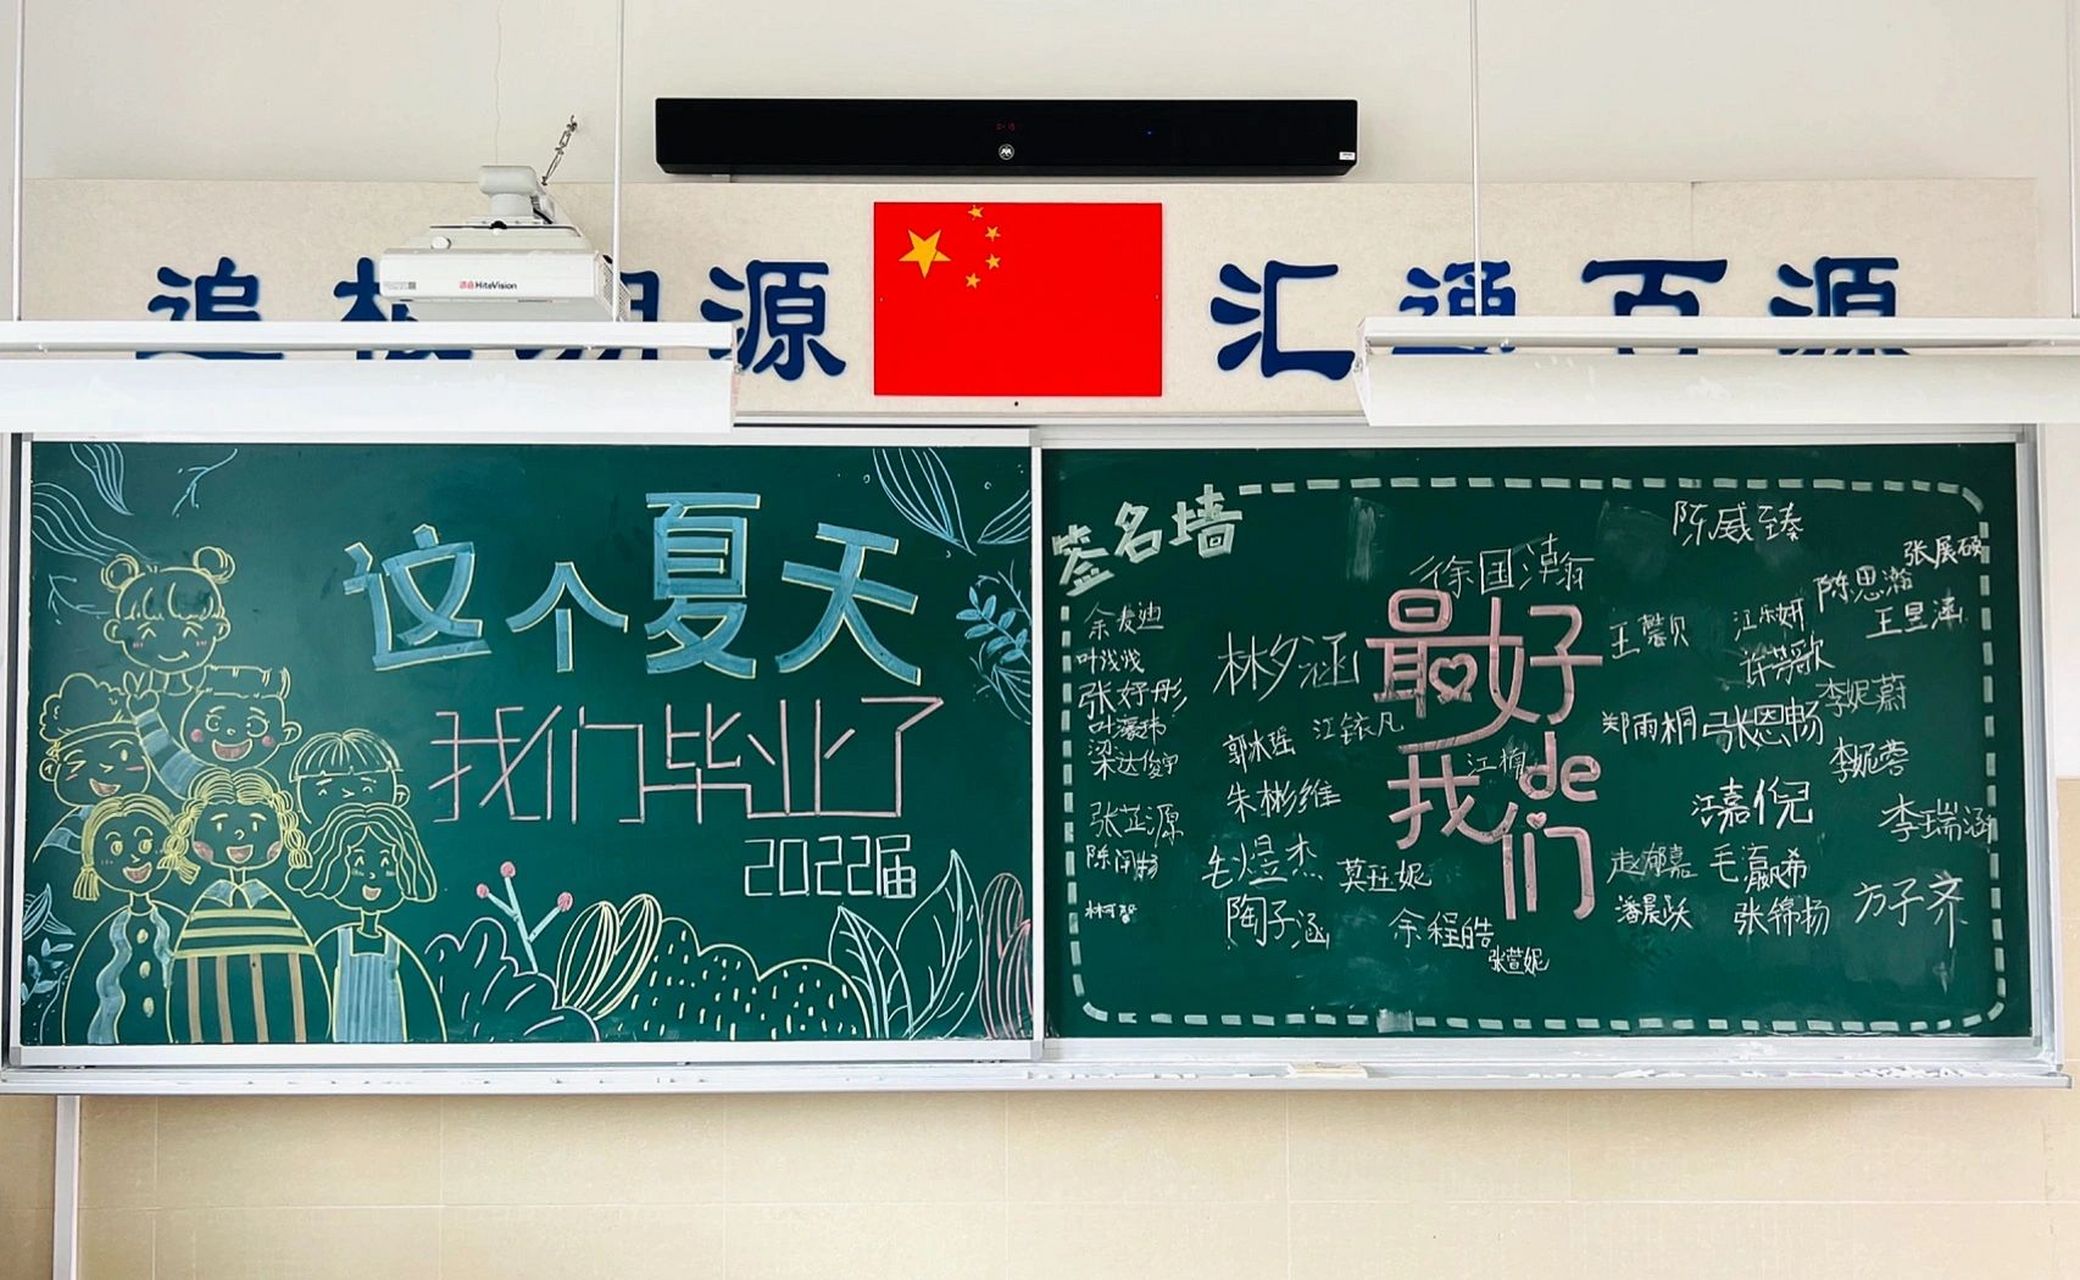 HiteVision
追根溯源
汇通百源
这个夏天
我们毕业了
2022届
签名墙
陈威臻
张展硕
徐国瀚
陈思瀚
余麦迪
王馨贝
江乐妍
王昱涵
叶浅浅
林夕涵
最好
许梦歌
张好彤
李妮蔚
郑雨桐
张恩畅
梁达俊宇
郭冰瑶
江铱凡
江楠
de
李妮蓉
我们
朱彬维
江嘉倪
张芷源
李瑞涵
毛煜杰
莫珏妮
赵郁嘉
毛瀛希
林可馨
陶子涵
余程皓
潘晨跃
张锦扬
方子齐
张萱妮